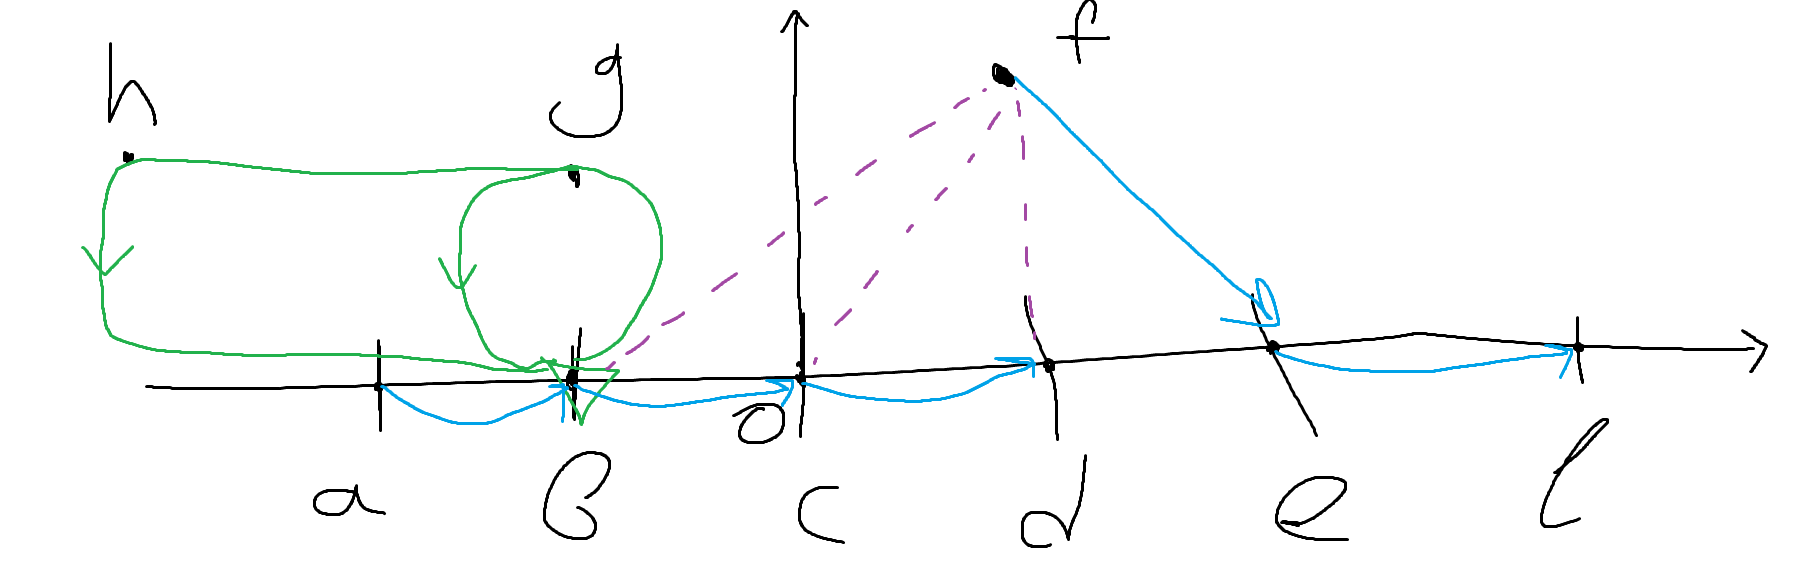 h g f
o
a b c d e l